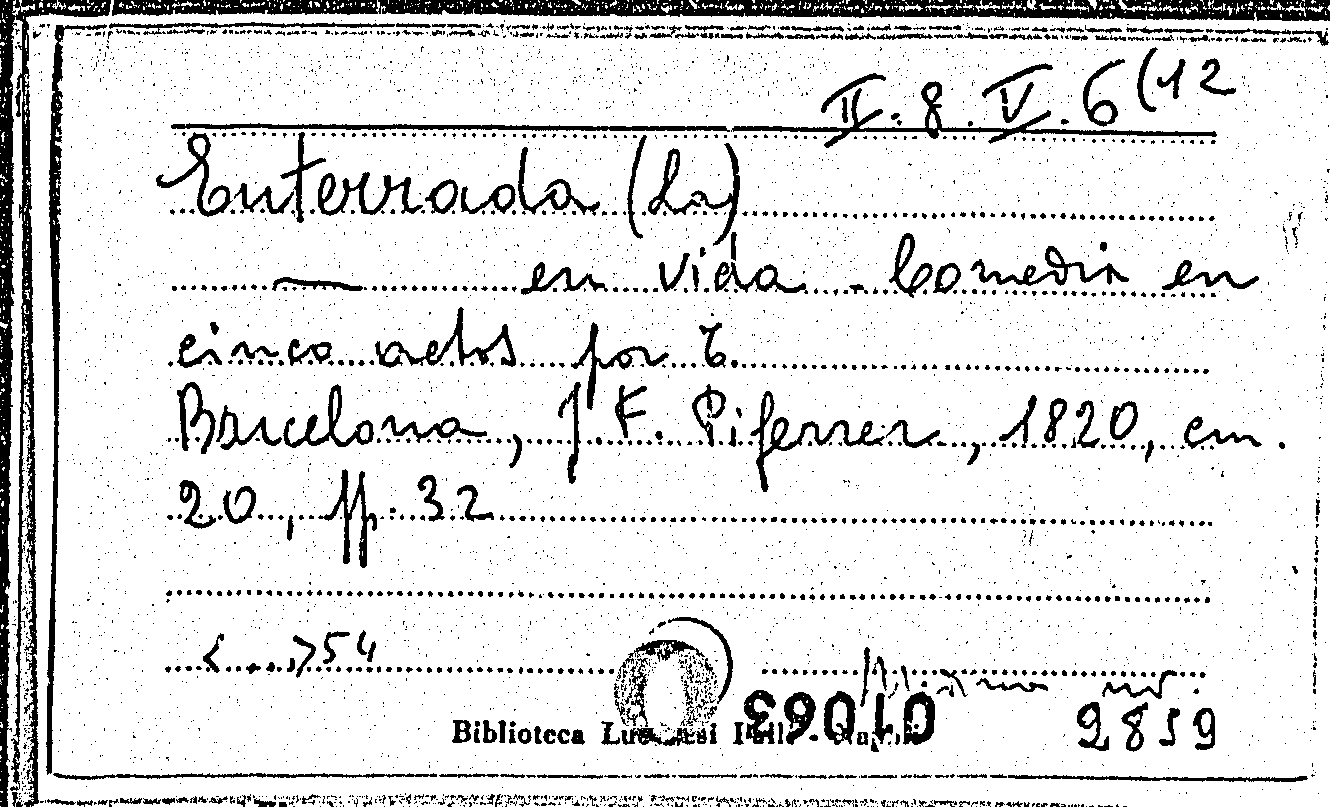 II. 8. V. 6 (12
Enterrada (La)
— en vida. Comedia en
cinco actos por C.
Barcelona, J. F. Piferrer, 1820, cm.
20, pp. 32
<...> 54
inv.
01063
Biblioteca Lucchesi Palli - Napoli
2859